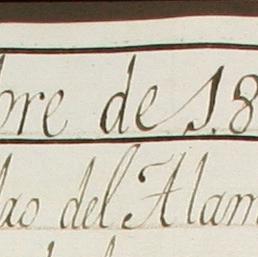 bre de 18
lao del Alam